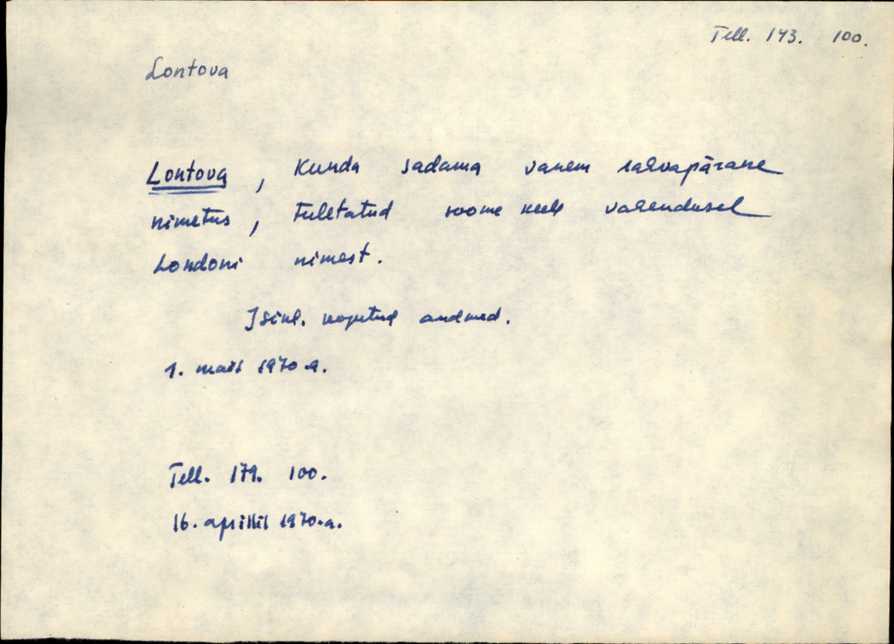 Tell. 143. 100.
Lontova
Lontova, Kunda sadama vanem rahvapärane
nimetus, tuletatud soome keele vahendusel
Londoni nimest.
Isikl. kogutud andmed.
1. mail 1970 a.
Tell. 179. 100.
16. aprillil 1970.a.